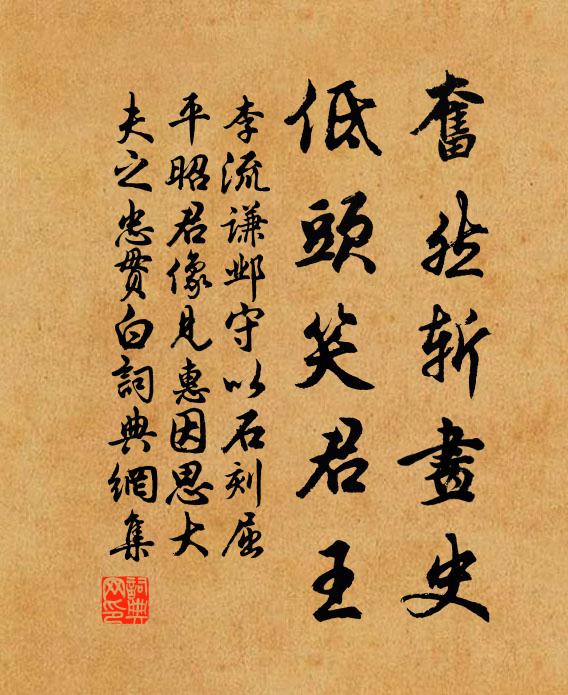 奮然斬畫史
低頭笑君王
李流謙邺守以石刻屈
平昭君像見惠因思大
夫之忠贯白詞典網集